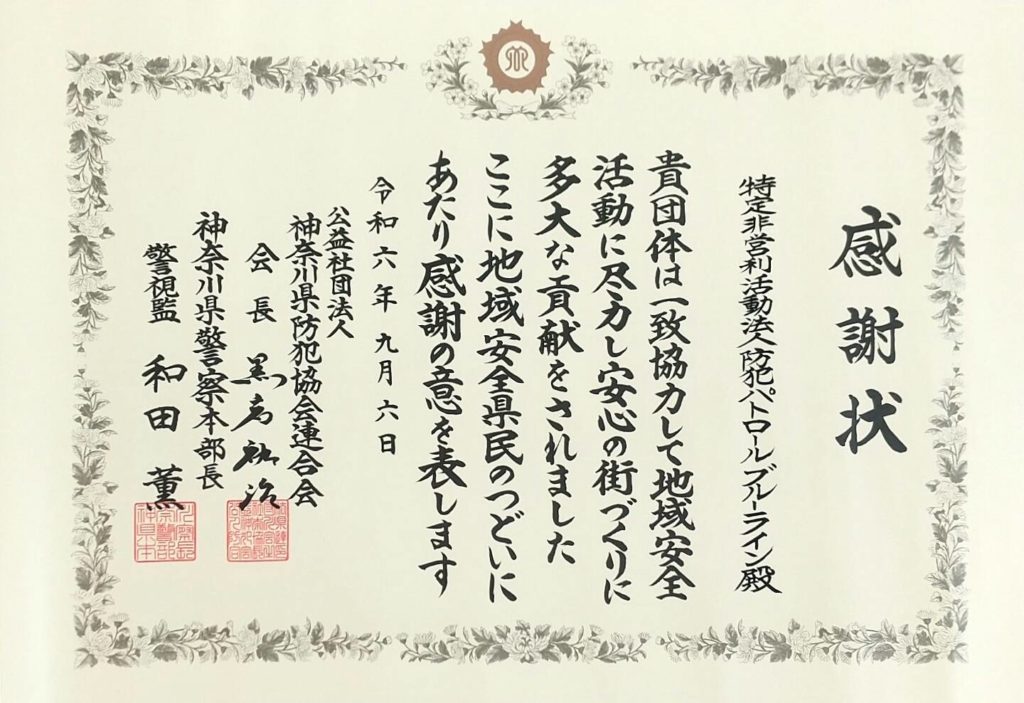 感謝状
特定非営利活動法人防犯パトロールブルーライン殿
貴団体は一致協力して地域安全
活動に尽力し安心の街づくりに
多大な貢献をされました
ここに地域安全県民のつどいに
あたり感謝の意を表します
令和六年九月六日
公益社団法人
神奈川県防犯協会連合会
会長
神奈川県警察本部長
警視監 和田薫